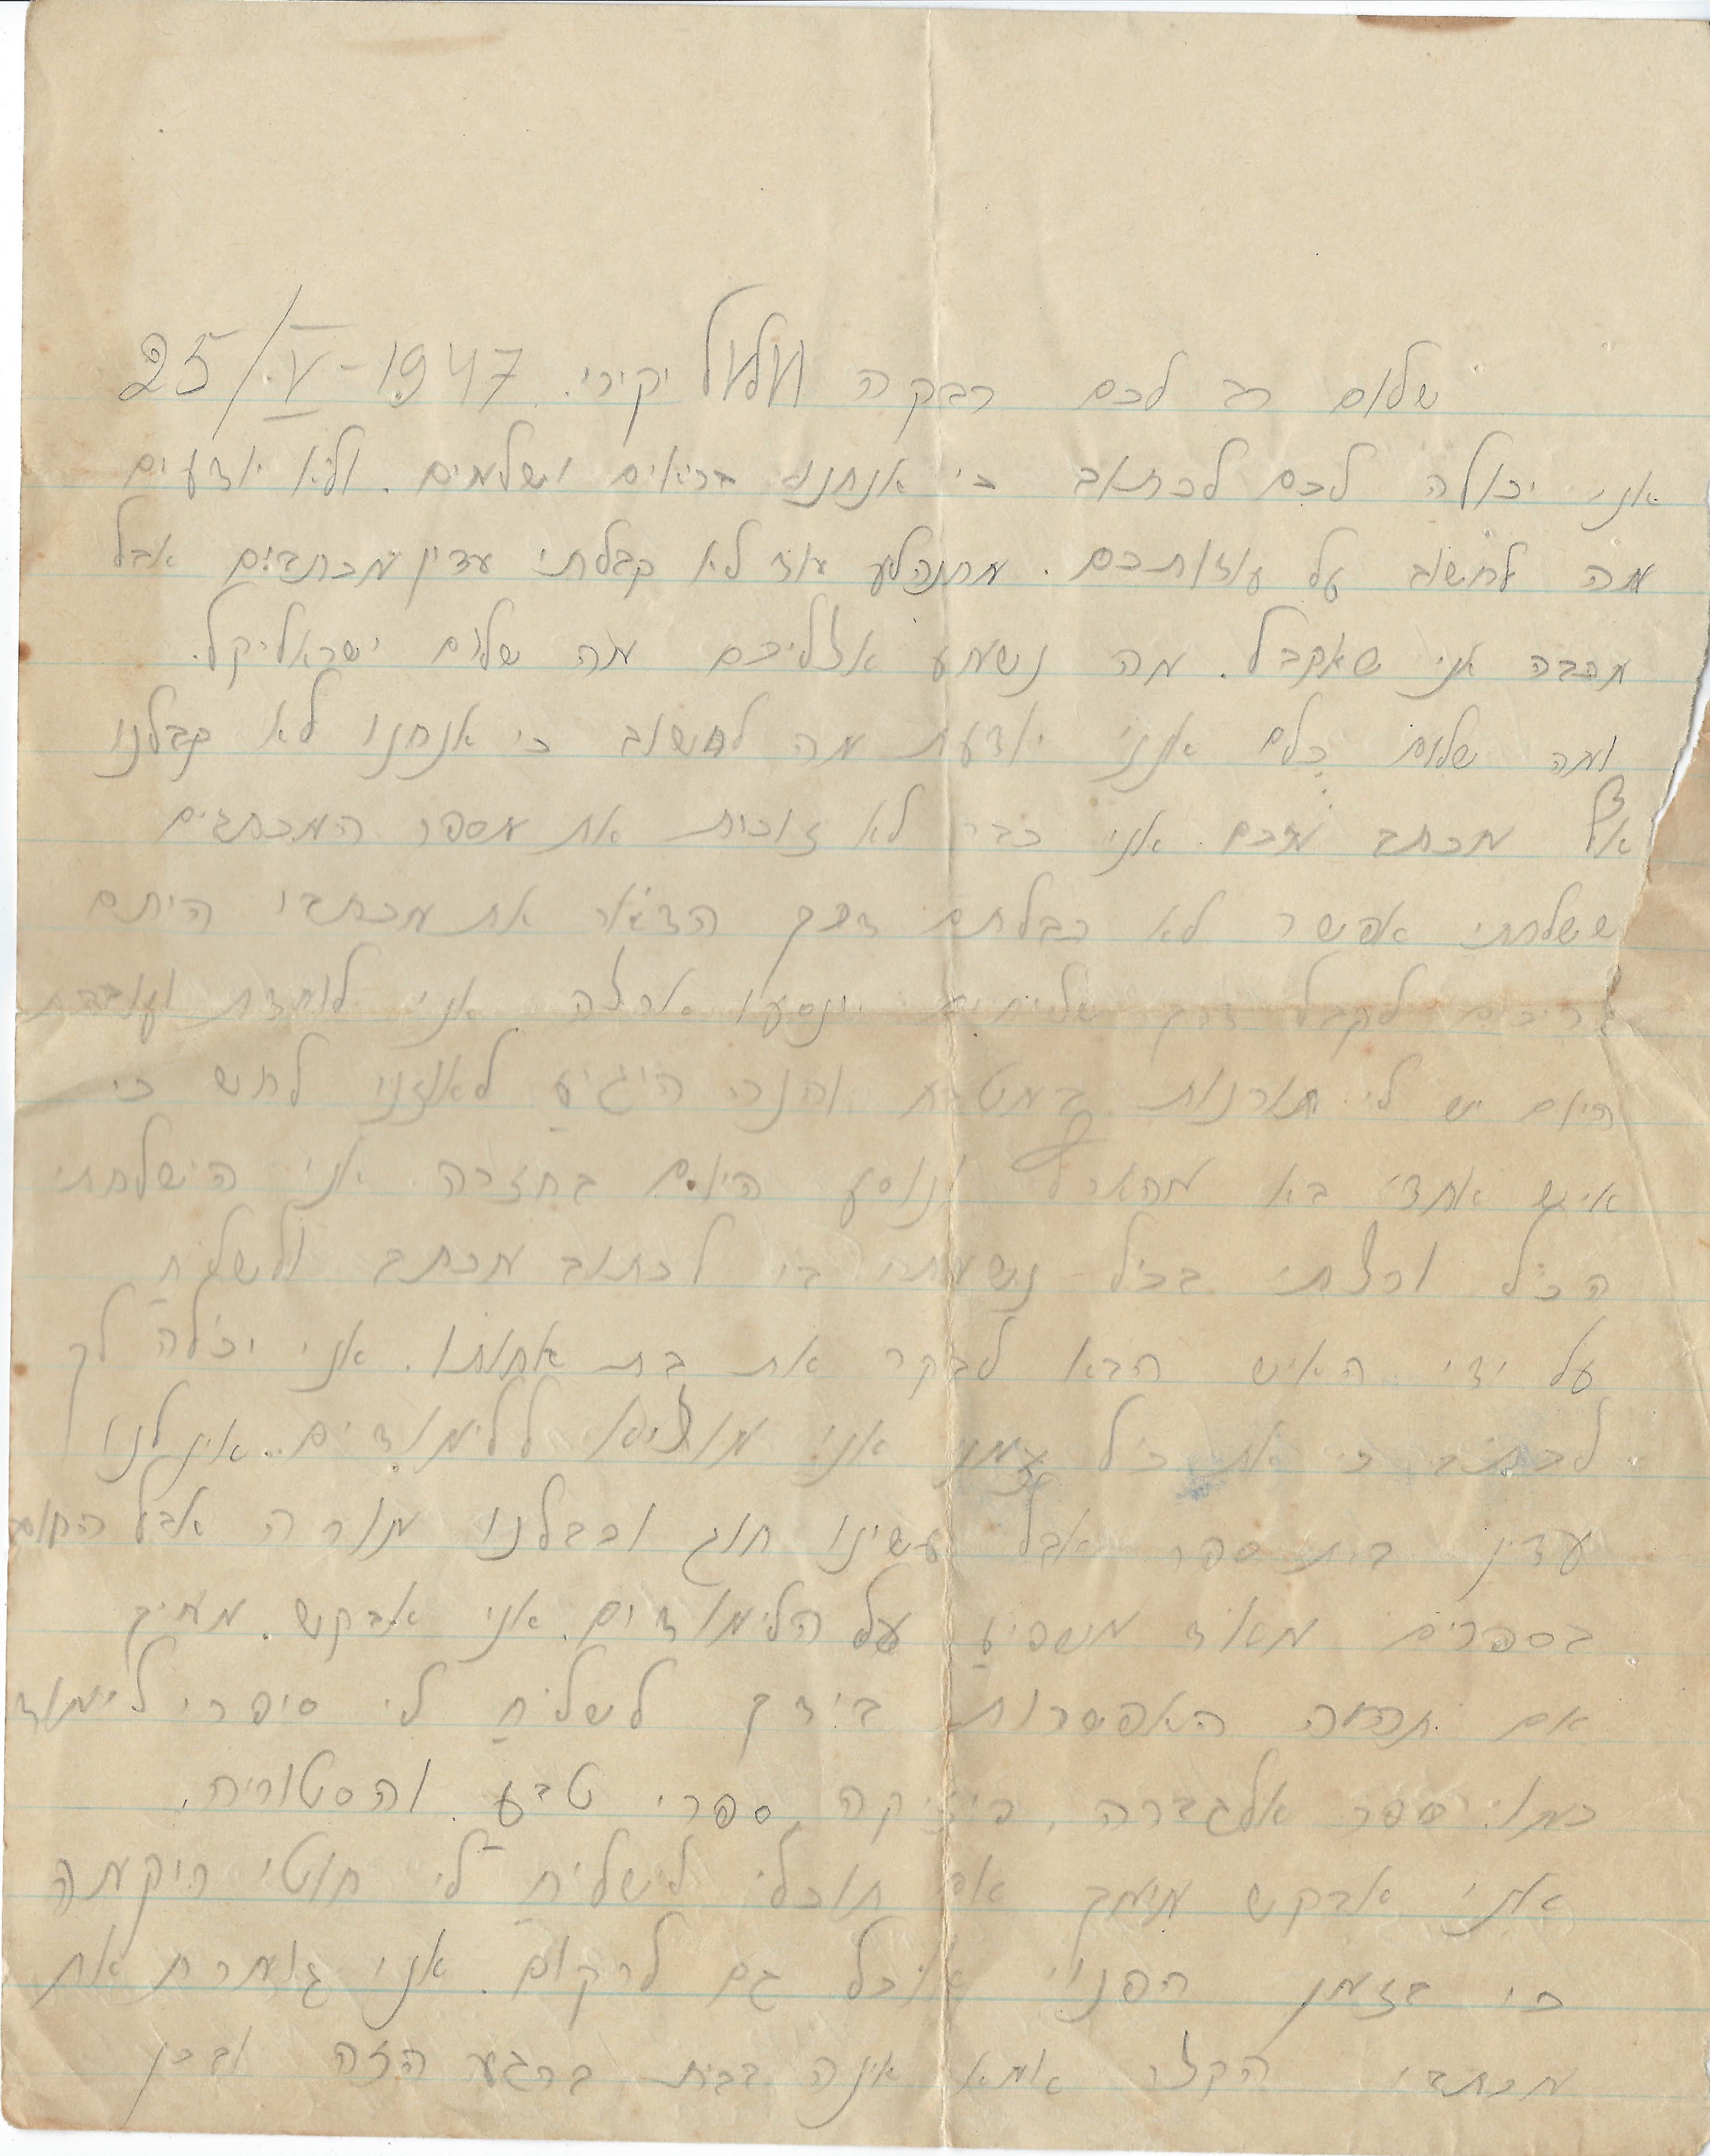 שלום רב לכם רבקה יקירי. 25/V-1947
אני יכולה לכם לכתוב כי אנחנו בריאים ושלמים. ולא יודעים
מה לחשוב על אודותכם. עוד לא קבלתי עדין מכתבים אבל
מחכה אני שאקבל. מה נשמע אצליכם מה שלום ישראליקל.
ומה שלום כלם אינני יודעת מה לחשוב כי אנחנו לא קבלנו
אף מכתב מכם. אני כבר לא זוכרת את מספר המכתבים
ששלחתי אפשר לא קבלתם דרך הדואר את מכתבי הייתם
צריכים לקבל דרך שנסעו ארצה אני לומדת ועובדת
היום יש לי תורנות במטבח והנה היגיע לאוזני לחש כי
איש אחד בא מהארץ ונוסע היום בחזרה אני הישלחתי
הכל ורצתי בכל נשמתי לכתוב מכתב ולשלח
על ידי האיש הבא לבקר את בת אחותו. אני יכולה לך
לכתוב כי את כל זמני אני מוציא ללימודים. אין לנו
עדין בית ספר אבל עשינו חוג וקבלנו מורה אבל החוסר
בספרים מאוד משפיע על הלימודים. אני אבקש ממך
אם תהיה האפשרות בידך לשלח לי סיפרי לימוד
כמו: ספר אלגברה, פיזיקה ספרי טבע והסטוריה.
אני אבקש ממך אם תוכלי לישליח לי חוטי ריקמה
כי בזמן הפנוי אוכל גם לרקום. אני גומרת את
מכתבי הקצר אמא אינה בבית ברגע הזה ובכן